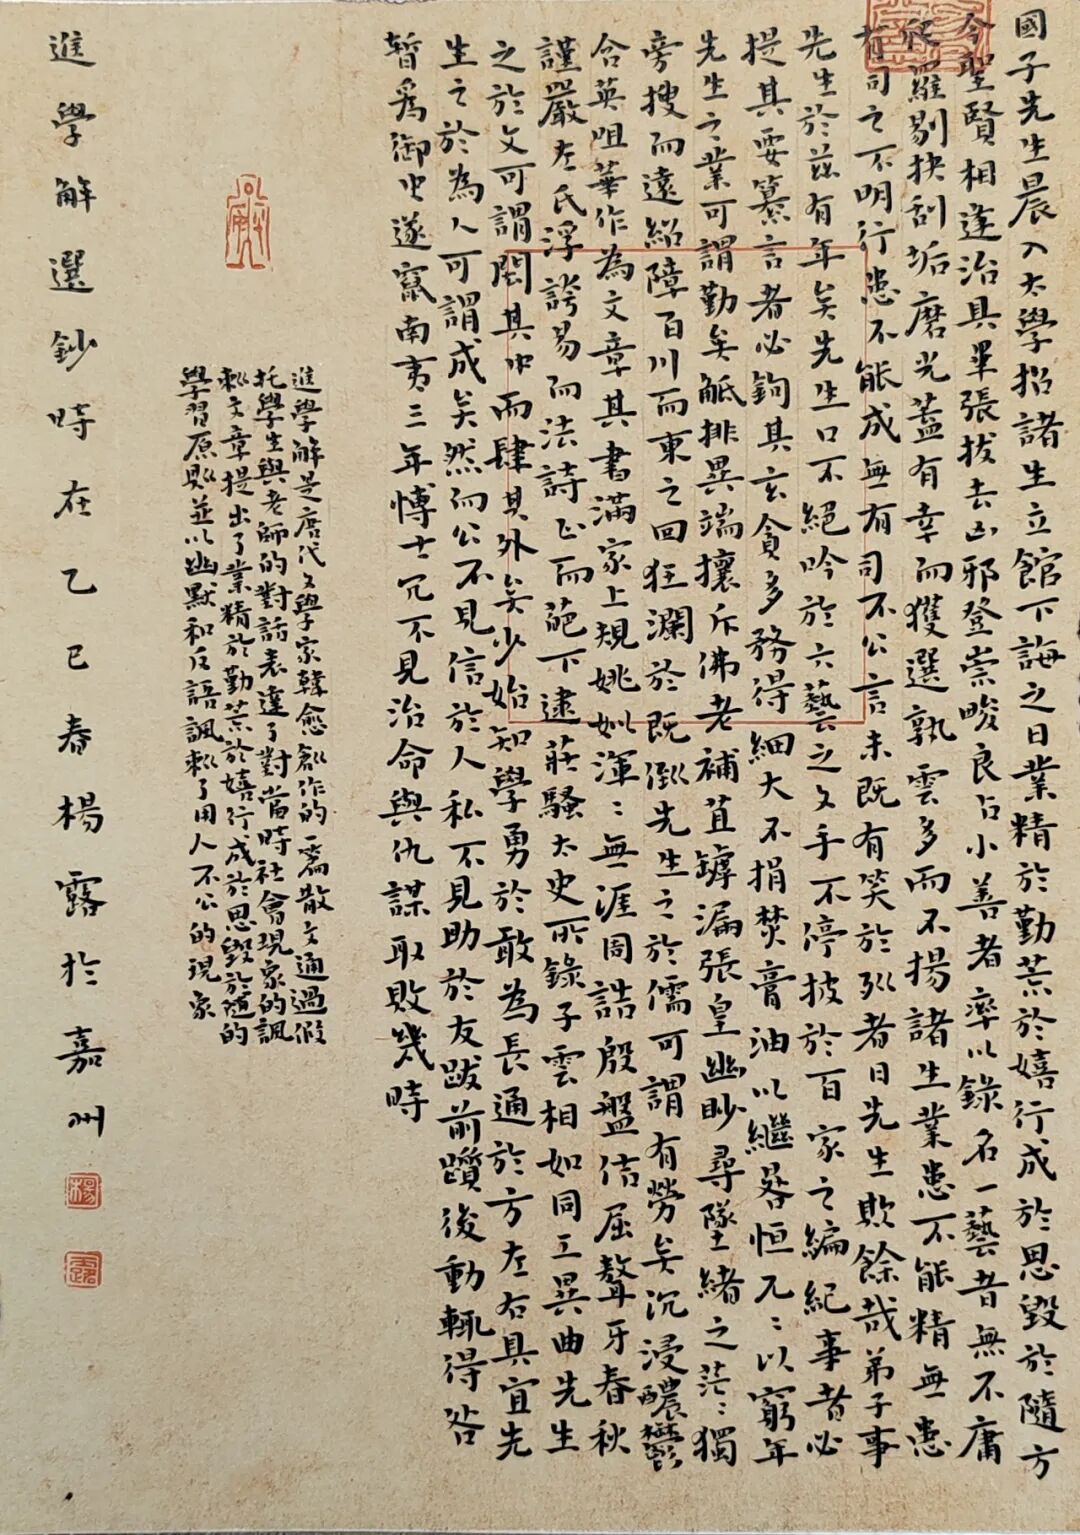 國子先生晨入太學招諸生立館下誨之曰業精於勤荒於嬉行成於思毀於隨方
今聖賢相逢治具畢張拔去凶邪登崇畯良占小善者率以錄名一藝者無不庸
爬羅剔抉刮垢磨光蓋有幸而獲選孰雲多而不揚諸生業患不能精無患
有司之不明行患不能成無有司不公言未既有笑於列者曰先生欺餘哉弟子事
先生於茲有年矣先生口不絕吟於六藝之文手不停披於百家之編紀事者必
提其要纂言者必鉤其玄貪多務得細大不捐焚膏油以繼晷恒兀〻以窮年
先生之業可謂勤矣觝排異端攘斥佛老補苴罅漏張皇幽眇尋墜緒之茫〻獨
旁搜而遠紹障百川而東之回狂瀾於既倒先生之於儒可謂有勞矣沉浸醲鬱
含英咀華作為文章其書滿家上規姚姒渾〻無涯周誥殷盤佶屈聱牙春秋
謹嚴左氏浮誇易而法詩正而葩下逮莊騷太史所錄子雲相如同工異曲先生
之於文可謂閎其中而肆其外矣少始知學勇於敢為長通於方左右具宜先
生之於為人可謂成矣然而公不見信於人私不見助於友跋前躓後動輒得咎
暫為御史遂竄南夷三年博士冗不見治命與仇謀取敗幾時
進學解是唐代文學家韓愈創作的一篇散文通過假
托學生與老師的對話表達了對當時社會現象的諷
刺文章提出了業精於勤荒於嬉行成於思毀於隨的
學習原則並以幽默和反語諷刺了用人不公的現象
進學解選鈔時在乙巳春楊露於嘉州
楊
露